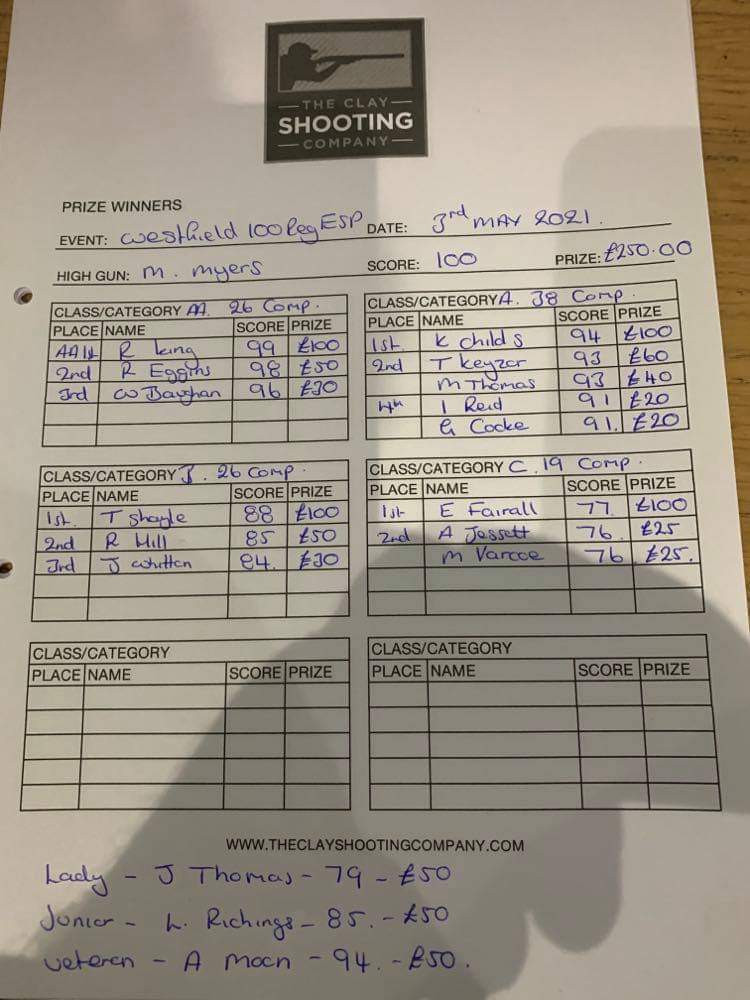 THE CLAY
SHOOTING
COMPANY
PRIZE WINNERS
EVENT: Westfield 100 Reg ESP DATE: 3rd MAY 2021.
HIGH GUN: M. Myers SCORE: 100 PRIZE: £250.00
CLASS/CATEGORY AA. 26 Comp.
PLACE NAME SCORE PRIZE
AA1st R King 99 £100
2nd R Eggins 98 £50
3rd W Baughan 96 £30
CLASS/CATEGORY A. 38 Comp.
PLACE NAME SCORE PRIZE
1st. K Childs 94 £100
2nd T Keyzor 93 £60
M Thomas 93 £40
4th I Reid 91 £20
G Cocke 91. £20
CLASS/CATEGORY B. 26 Comp.
PLACE NAME SCORE PRIZE
1st. T Shayle 88 £100
2nd R Hill 85 £50
3rd J Whitten 84. £30
CLASS/CATEGORY C. 19 Comp.
PLACE NAME SCORE PRIZE
1st E Fairall 77. £100
2nd A Jessett 76. £25
M Varcoe 76 £25.
CLASS/CATEGORY
PLACE NAME SCORE PRIZE
CLASS/CATEGORY
PLACE NAME SCORE PRIZE
WWW.THECLAYSHOOTINGCOMPANY.COM
Lady - J Thomas - 79 - £50
Junior - L. Richings - 85. - £50
Veteran - A Moon - 94. - £50.